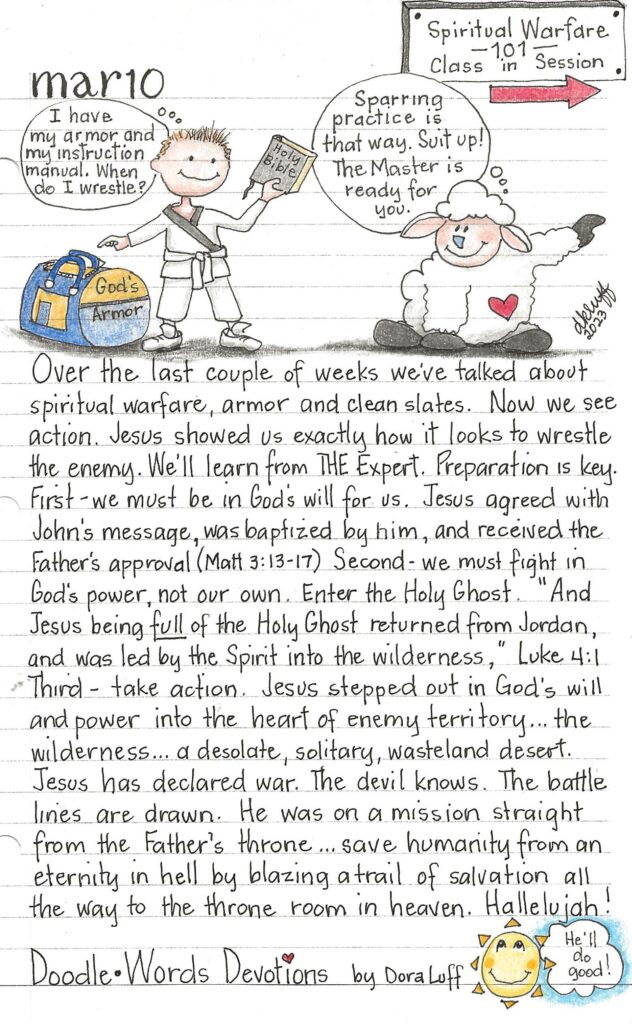 Spiritual Warfare
-101-
Class in Session
mar10
I have
my armor and
my instruction
manual. When
do I wrestle?
Holy
Bible
Sparring
practice is
that way. Suit up!
The Master is
ready for
you.
God's
Armor
dkluff
2023
Over the last couple of weeks we've talked about
spiritual warfare, armor and clean slates. Now we see
action. Jesus showed us exactly how it looks to wrestle
the enemy. We'll learn from THE Expert. Preparation is key.
First - we must be in God's will for us. Jesus agreed with
John's message, was baptized by him, and received the
Father's approval (Matt 3:13-17) Second - we must fight in
God's power, not our own. Enter the Holy Ghost. "And
Jesus being full of the Holy Ghost returned from Jordan,
and was led by the Spirit into the wilderness," Luke 4:1
Third - take action. Jesus stepped out in God's will
and power into the heart of enemy territory... the
wilderness... a desolate, solitary, wasteland desert.
Jesus has declared war. The devil knows. The battle
lines are drawn. He was on a mission straight
from the Father's throne... save humanity from an
eternity in hell by blazing a trail of salvation all
the way to the throne room in heaven. Hallelujah!
He'll
do
good!
Doodle•Words Devotions by Dora Luff